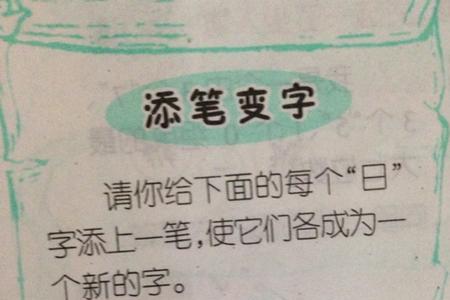 添笔变字
请你给下面的每个“日”
字添上一笔,使它们各成为一
个新的字。